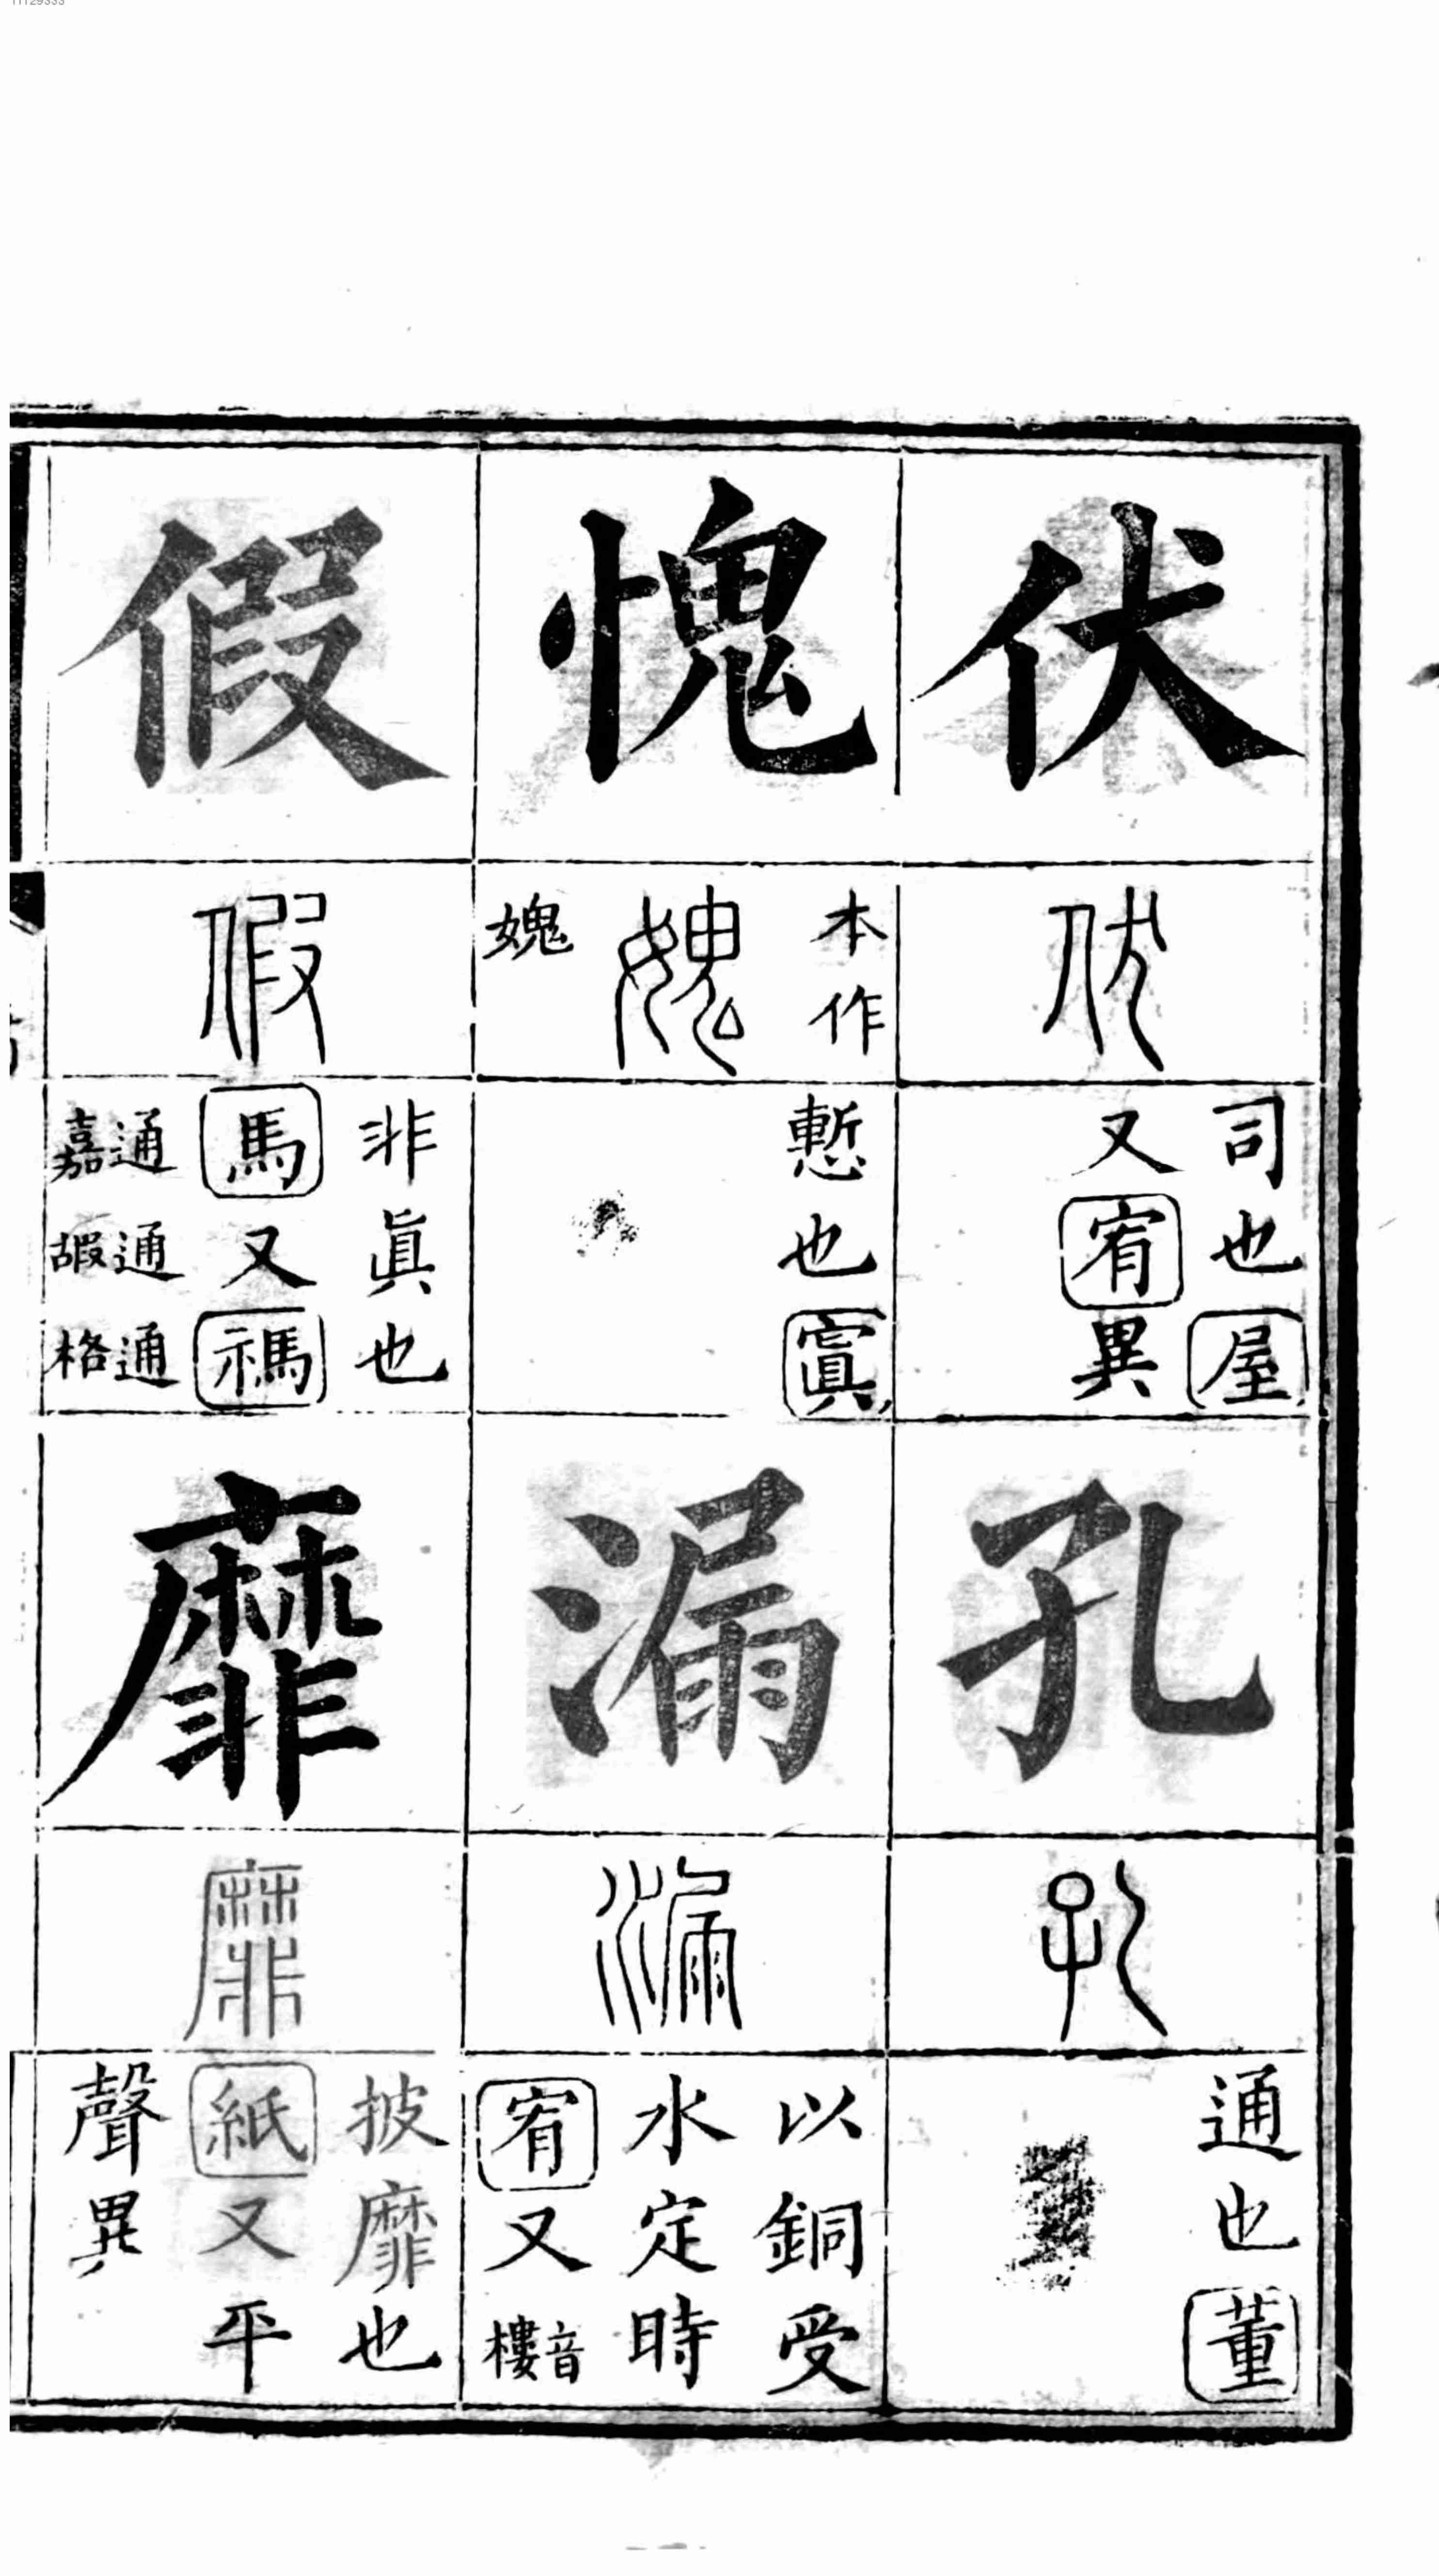 11129333
伏
伏
司也屋
又宥異
孔
孔
通也董
愧
本作
媿
媿
慙也寘
漏
漏
以銅受
水定時
宥又音樓
假
假
非眞也
馬又禡
通嘉通嘏通格
靡
靡
披靡也
紙又平
聲異